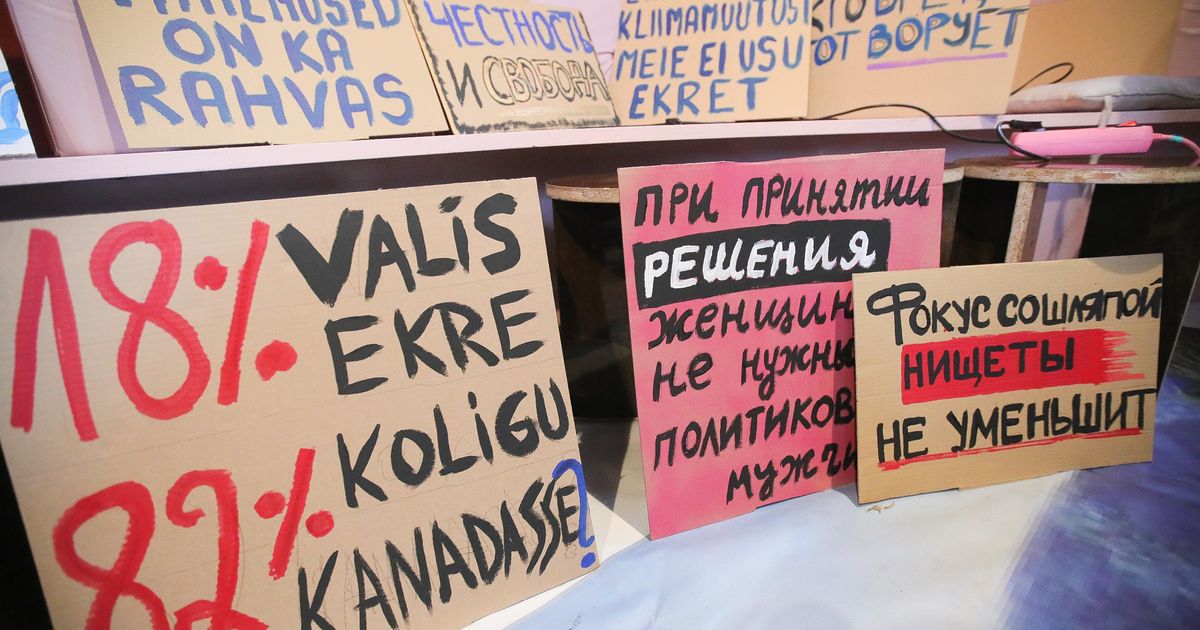 ON KA
RAHVAS
ЧЕСТНОСТЬ
И СВОБОДА
KLIIMAMUUTUSI
MEIE EI USU
EKRET
ОТ ВОРУЕТ
18% VALIS
EKRE
82% KOLIGU
KANADASSE?
ПРИ ПРИНЯТИИ
РЕШЕНИЯ
ЖЕНЩИН
НЕ НУЖНЫ
ПОЛИТИКОВ
МУЖЧИ
ФОКУС СО ШЛЯПОЙ
НИЩЕТЫ
НЕ УМЕНЬШИТ